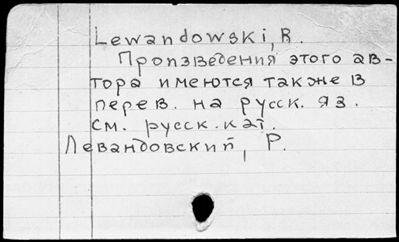 Lewandowski, R.
Произведения этого ав-
тора имеются также в
перев. на русск. яз.
См. русск. кат.
Левандовский, Р.